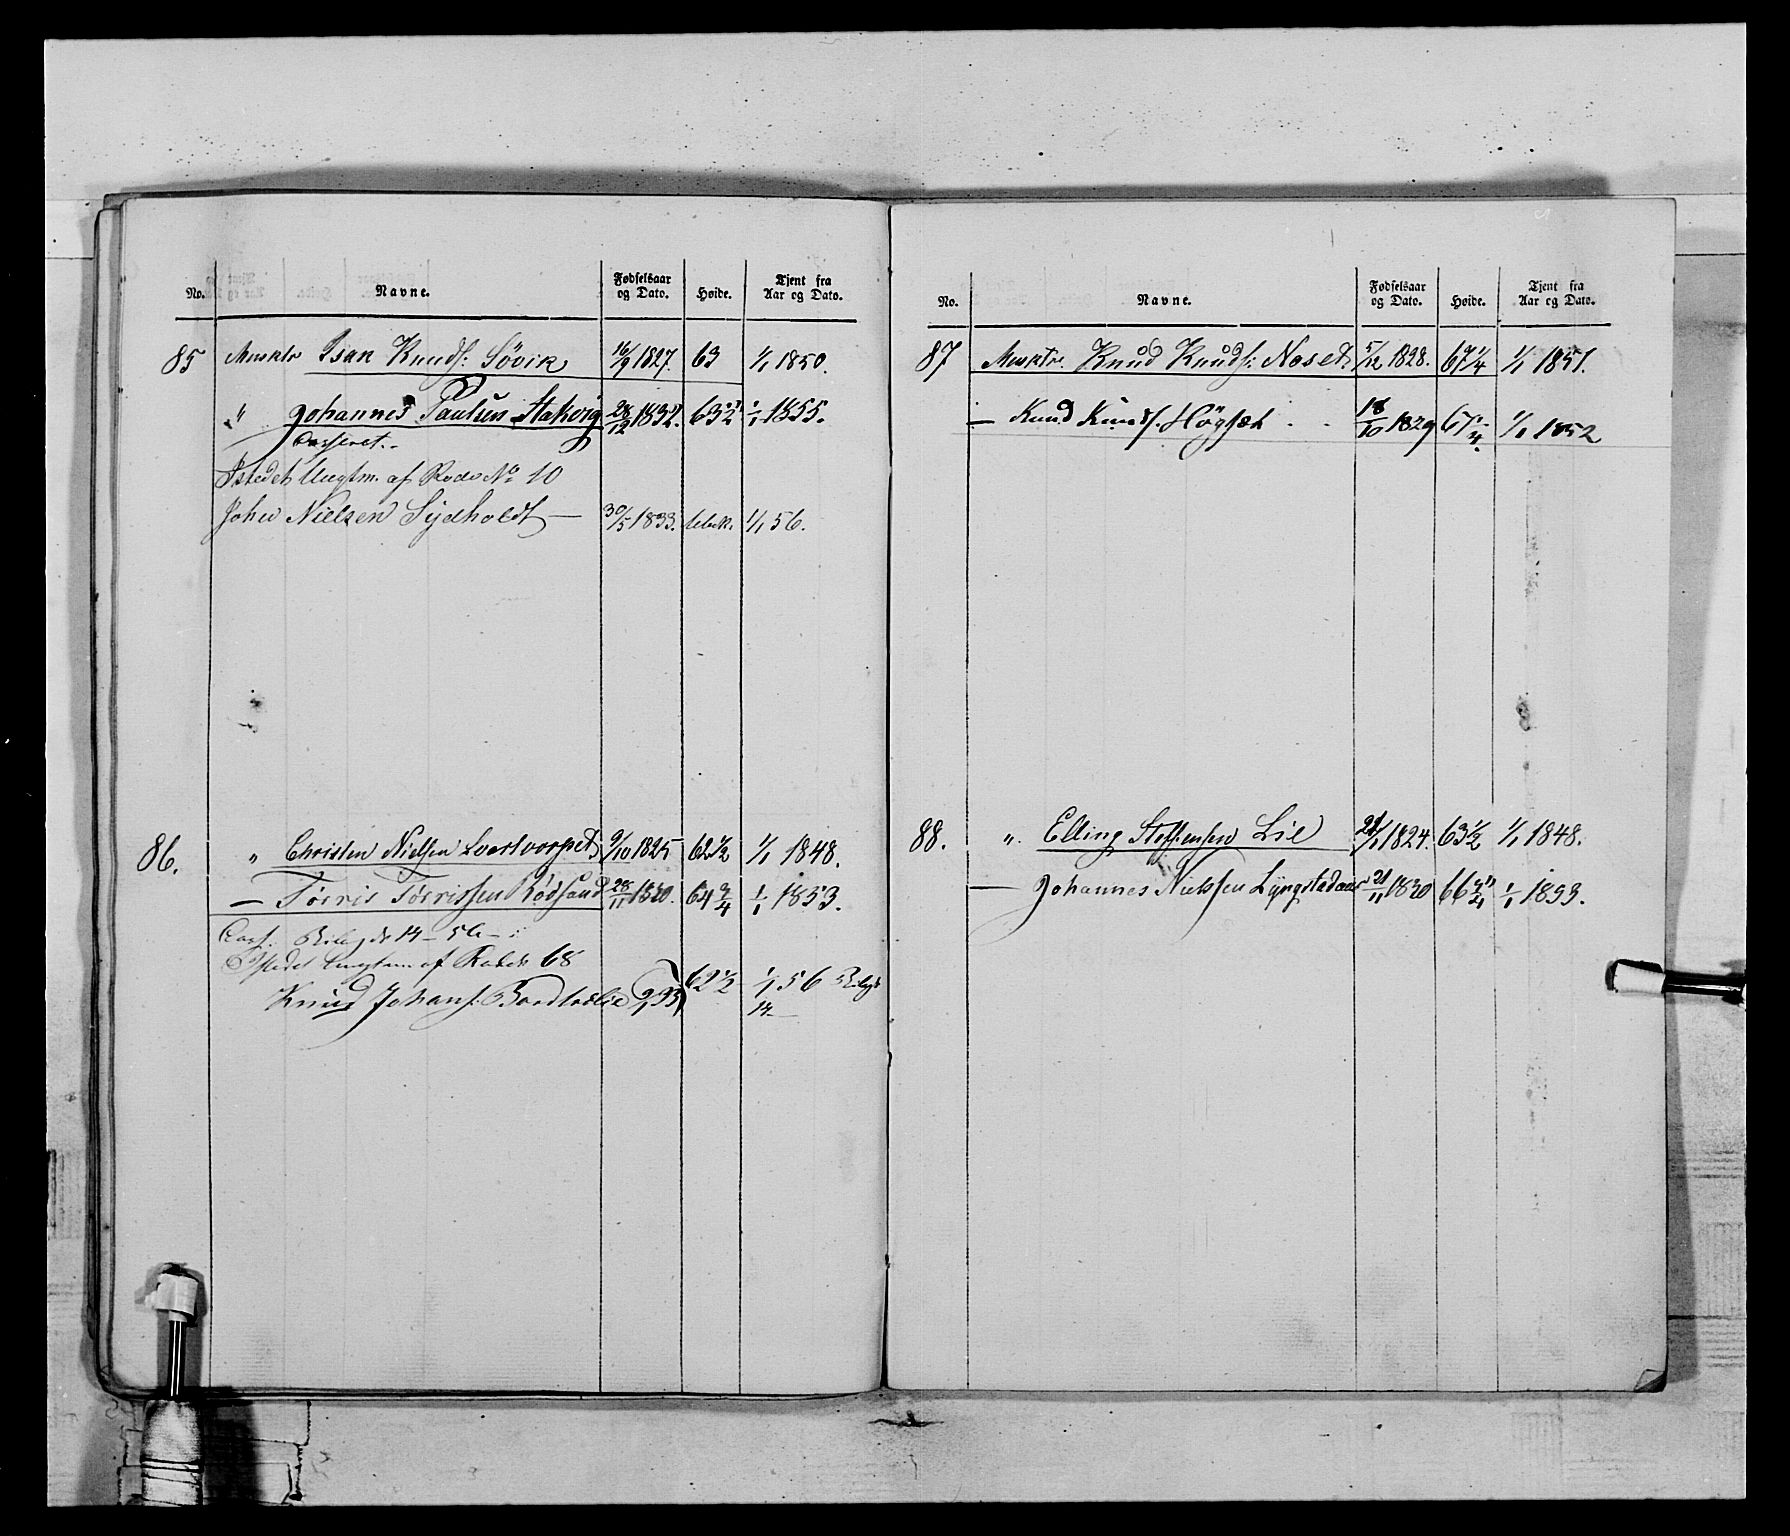 No. Navne. Fødselsaar og Dato. Høide. Tjent fra Aar og Dato.
85 Musktr Isak Knuds: Søvik 16/9 1827. 63 1/1 1850.
" Johannes Paulsen 28/12 1832. 63 1/2" 1/1 1855.
Casseret.
Istedet Ungtm. af Rode No 10
John Nielsen Sydholdt — 30/5 1833. ubek. 1/1 56.
86. " Christen Nielsen 9/10 1825 62 1/2 1/1 1848.
— Torris Torrissen Rødsand 28/11 1830. 64 3/4 1/1 1853.
Cass.
Istedet Ungtm. af Rode 68
Knud Johans: 62 1/2 1/1 56
14
No. Navne. Fødselsaar og Dato. Høide. Tjent fra Aar og Dato.
87 Musktr. Knud Knuds: Noset 5/12 1828. 67 1/4 1/1 1851.
— Knud Knuds. Høgset . . 18/10 1829 67 1/4 1/1 1852
88. " Elling Steffensen Lie 1824. 63 1/2 1/1 1848.
— Johannes Nielsen Lyngstadaas 21/11 1830 66 3/4" 1/1 1853.